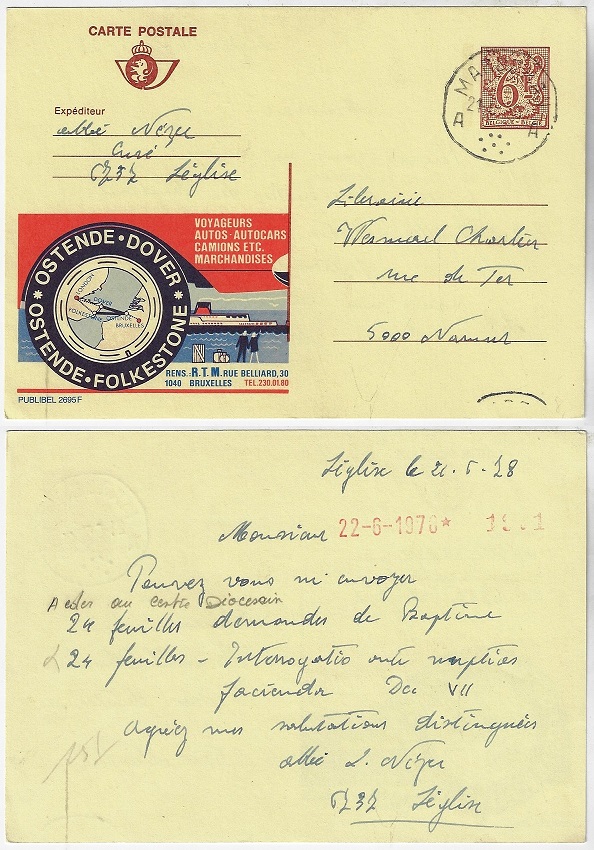 CARTE POSTALE
Expéditeur
abbé Nézer
Curé
6737 Léglise
6F
BELGIQUE-BELGIË
A A
VOYAGEURS
AUTOS-AUTOCARS
CAMIONS ETC.
MARCHANDISES
OSTENDE•DOVER
* OSTENDE•FOLKESTONE *
LONDON
DOVER
FOLKESTONE
OSTENDE
BRUXELLES
RENS.: R.T.M. RUE BELLIARD,30
1040 BRUXELLES TEL.230.01.80
PUBLIBEL 2695F
Librairie
Wesmael Charlier
rue de Fer
5000 Namur
Léglise le 21.6.78
Monsieur
22-6-1978*
Pouvez vous m'envoyer
au centre Diocesain
24 feuilles demandes de Baptême
24 feuilles - Interrogatio ante nuptias
facienda Doc VII
Agréez mes salutations distinguées
abbé J. Nézer
6737 Léglise